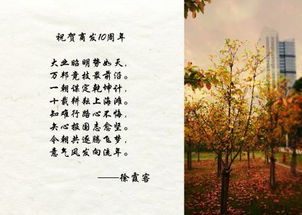 祝贺商发10周年
大业昭明势如天，
万邦竞技最前沿。
一朝谋定乾坤计，
十载耕耘上海滩。
知难行胳心不悔，
矢心报国志愈坚。
今朝共逐腾飞梦，
意气风发向流年。
——徐霞客